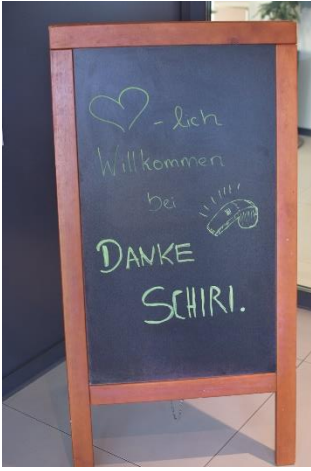 ♡-lich
Willkommen
bei
DANKE
SCHIRI.